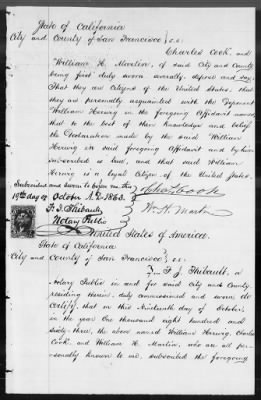 State of California
City and County of San Francisco } s.s.
Charles Cook, and
William H. Martin, of said City and County
being first duly sworn severally, depose and say
That they are Citizens of the United States, that
they are personally acquainted with the Deponent
William Herwig in the foregoing Affidavit named,
that to the best of their knowledge and belief
the Declaration made by the said William
Herwig in said foregoing Affidavit and by him
subscribed is true, and that said William
Herwig is a loyal Citizen of the United States.
Subscribed and sworn to before me this
19th day of October A.D. 1863.
F. J. Thibault
Notary Public
Chas Cook
W. H. Martin
United States of America.
State of California
City and County of San Francisco } s.s.
I, F. J. Thibault, a
Notary Public in and for said City and County
residing therein, duly commissioned and sworn do
Certify, that on this Nineteenth day of October,
in the year One thousand eight hundred and
sixty-three, the above named William Herwig, Charles
Cook and William H. Martin, who are all per-
sonally known to me, subscribed the foregoing